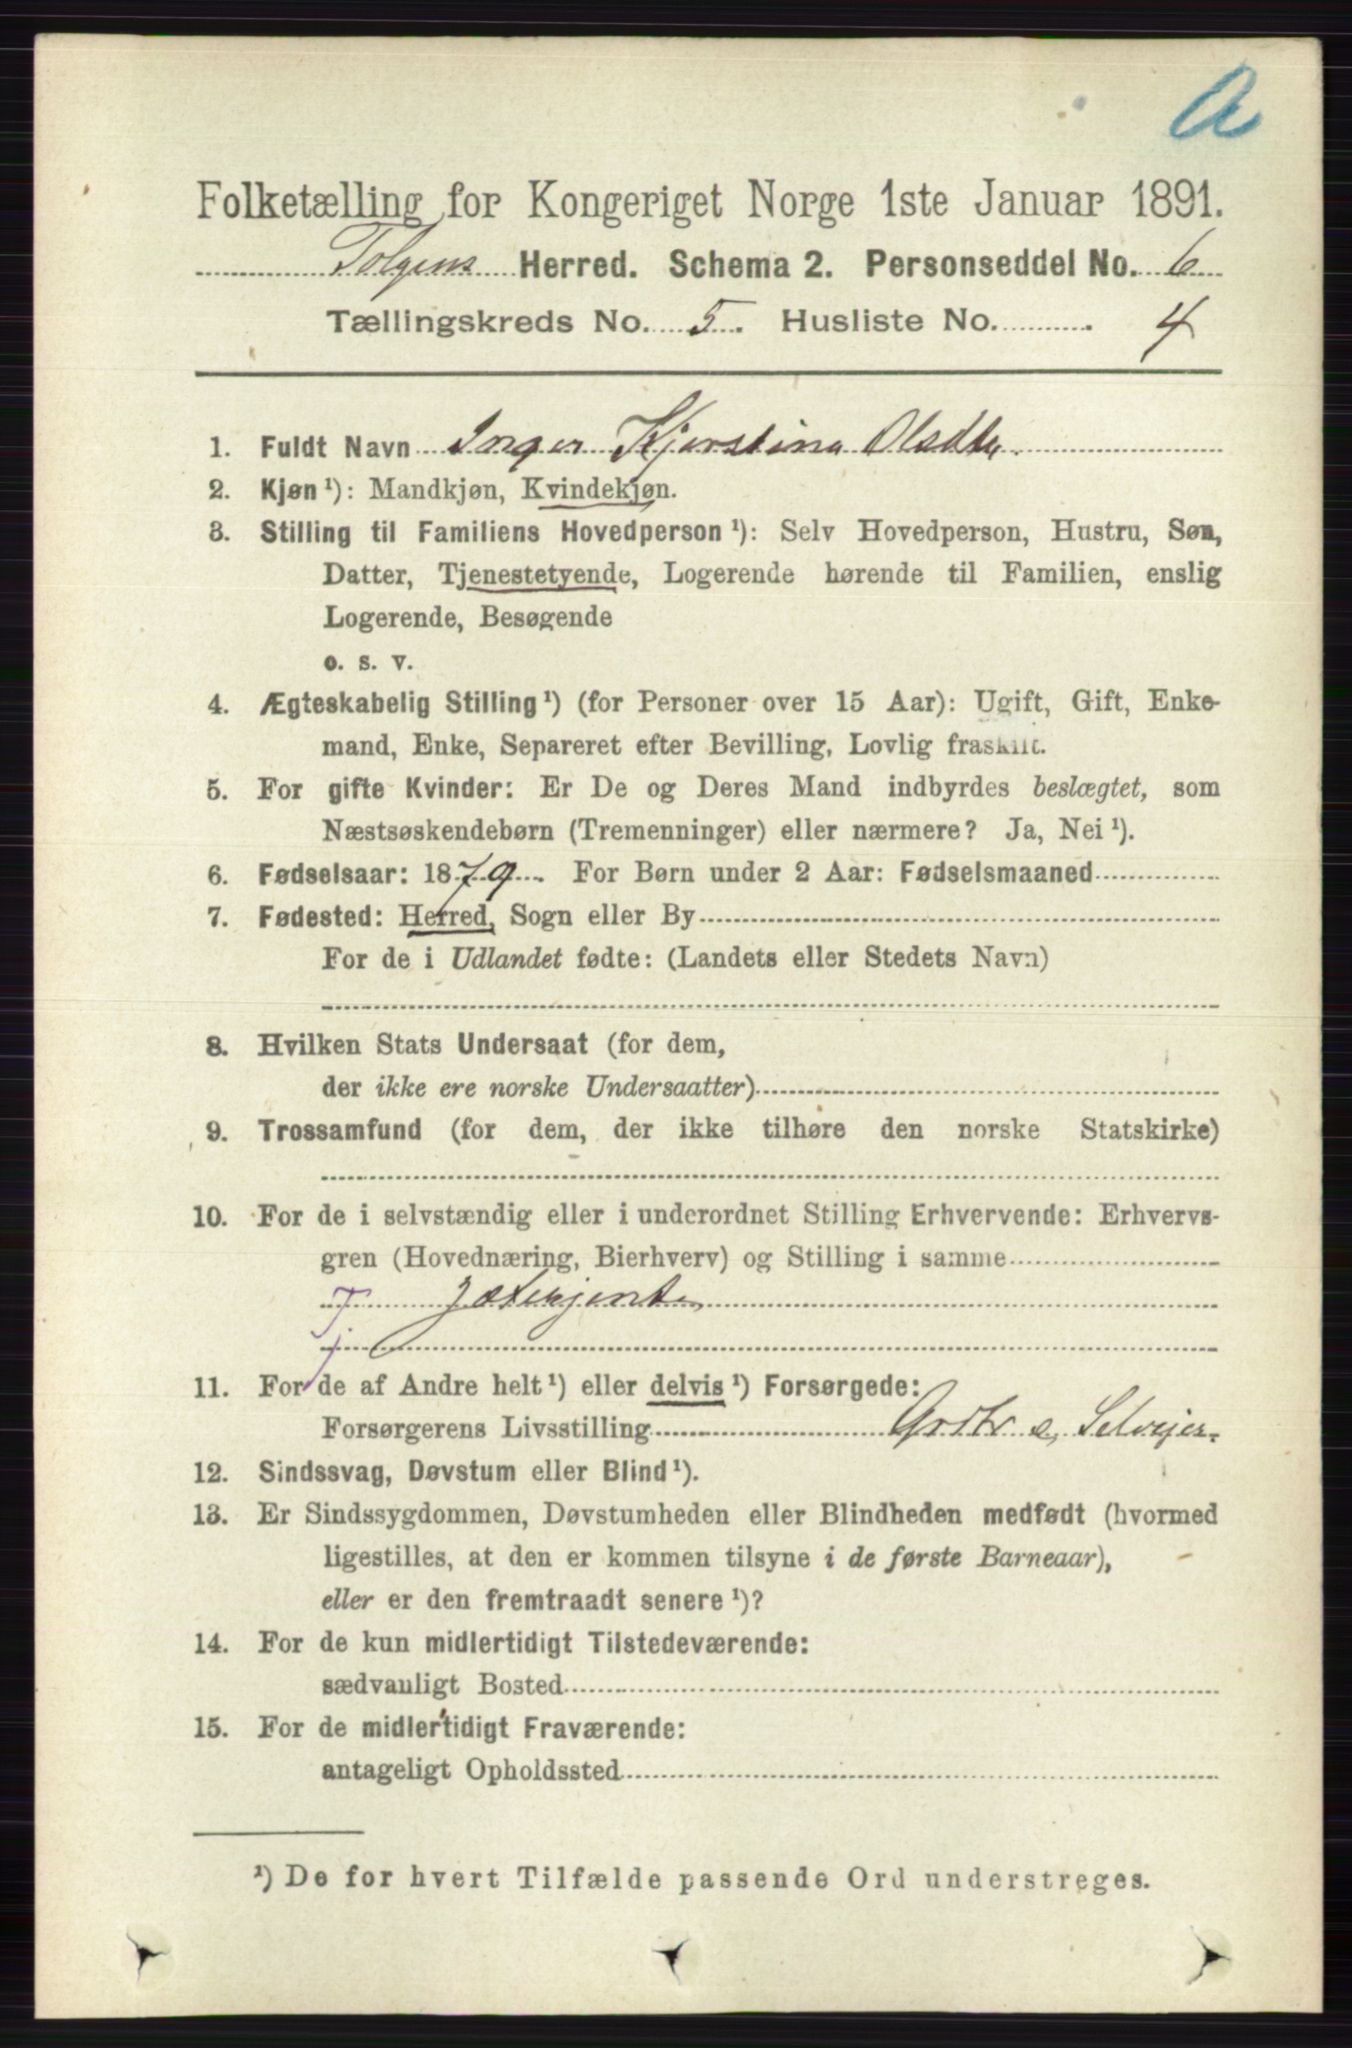 A
Folketælling for Kongeriget Norge 1ste Januar 1891.
Tolgens Herred. Schema 2. Personseddel No. 6
Tællingskreds No. 5. Husliste No. 4
1. Fuldt Navn Inger Kjerstina Olsdtr.
2. Kjøn ¹): Mandkjøn, Kvindekjøn.
3. Stilling til Familiens Hovedperson ¹): Selv Hovedperson, Hustru, Søn,
Datter, Tjenestetyende, Logerende hørende til Familien, enslig
Logerende, Besøgende
o. s. v.
4. Ægteskabelig Stilling ¹) (for Personer over 15 Aar): Ugift, Gift, Enke-
mand, Enke, Separeret efter Bevilling, Lovlig fraskilt.
5. For gifte Kvinder: Er De og Deres Mand indbyrdes beslægtet, som
Næstsøskendebørn (Tremenninger) eller nærmere? Ja, Nei ¹).
6. Fødselsaar: 1879. For Børn under 2 Aar: Fødselsmaaned
7. Fødested: Herred, Sogn eller By
For de i Udlandet fødte: (Landets eller Stedets Navn)
8. Hvilken Stats Undersaat (for dem,
der ikke ere norske Undersaatter)
9. Trossamfund (for dem, der ikke tilhøre den norske Statskirke)
10. For de i selvstændig eller i underordnet Stilling Erhvervende: Erhvervs-
gren (Hovednæring, Bierhverv) og Stilling i samme
T Jæterjente
j
11. For de af Andre helt ¹) eller delvis ¹) Forsørgede:
Forsørgerens Livsstilling Grdbr. o, Selveier.
12. Sindssvag, Døvstum eller Blind ¹).
13. Er Sindssygdommen, Døvstumheden eller Blindheden medfødt (hvormed
ligestilles, at den er kommen tilsyne i de første Barneaar),
eller er den fremtraadt senere ¹)?
14. For de kun midlertidigt Tilstedeværende:
sædvanligt Bosted
15. For de midlertidigt Fraværende:
antageligt Opholdssted
¹) De for hvert Tilfælde passende Ord understreges.